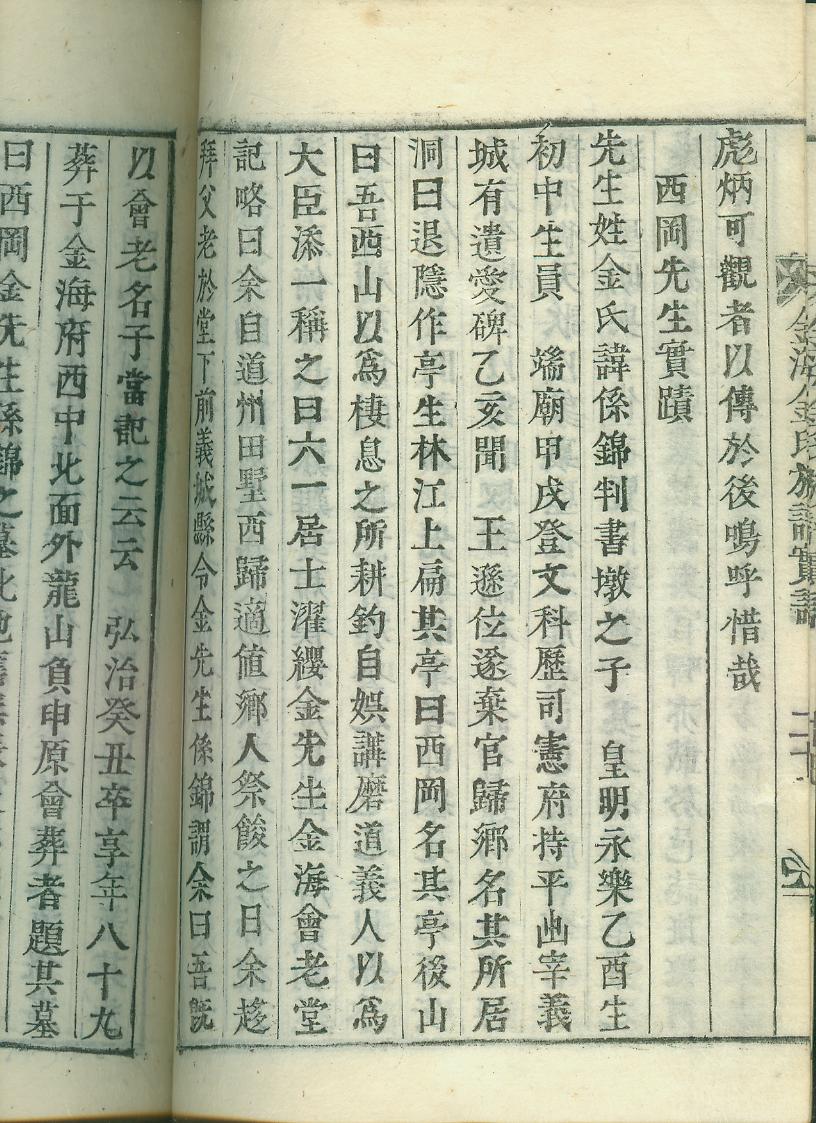 金海金氏族譜實記
二十
彪炳可觀者以傳於後嗚呼惜哉
西岡先生實蹟
先生姓金氏諱係錦判書墩之子 皇明永樂乙酉生
初中生員 端廟甲戌登文科歷司憲府持平出宰義
城有遺愛碑乙亥聞 王遜位遂棄官歸鄉名其所居
洞曰退隱作亭生林江上扁其亭曰西岡名其亭後山
曰吾西山以爲棲息之所耕釣自娛講磨道義人以爲
大臣添一稱之曰六一居士濯纓金先生金海會老堂
記略曰余自道州田墅西歸適値鄉人祭餕之日余趍
拜父老於堂下前義城縣令金先生係錦謂余曰吾旣
以會老名子當記之云云 弘治癸丑卒享年八十九
葬于金海府西中北面外龍山負申原會葬者題其墓
曰西岡金先生係錦之墓此地